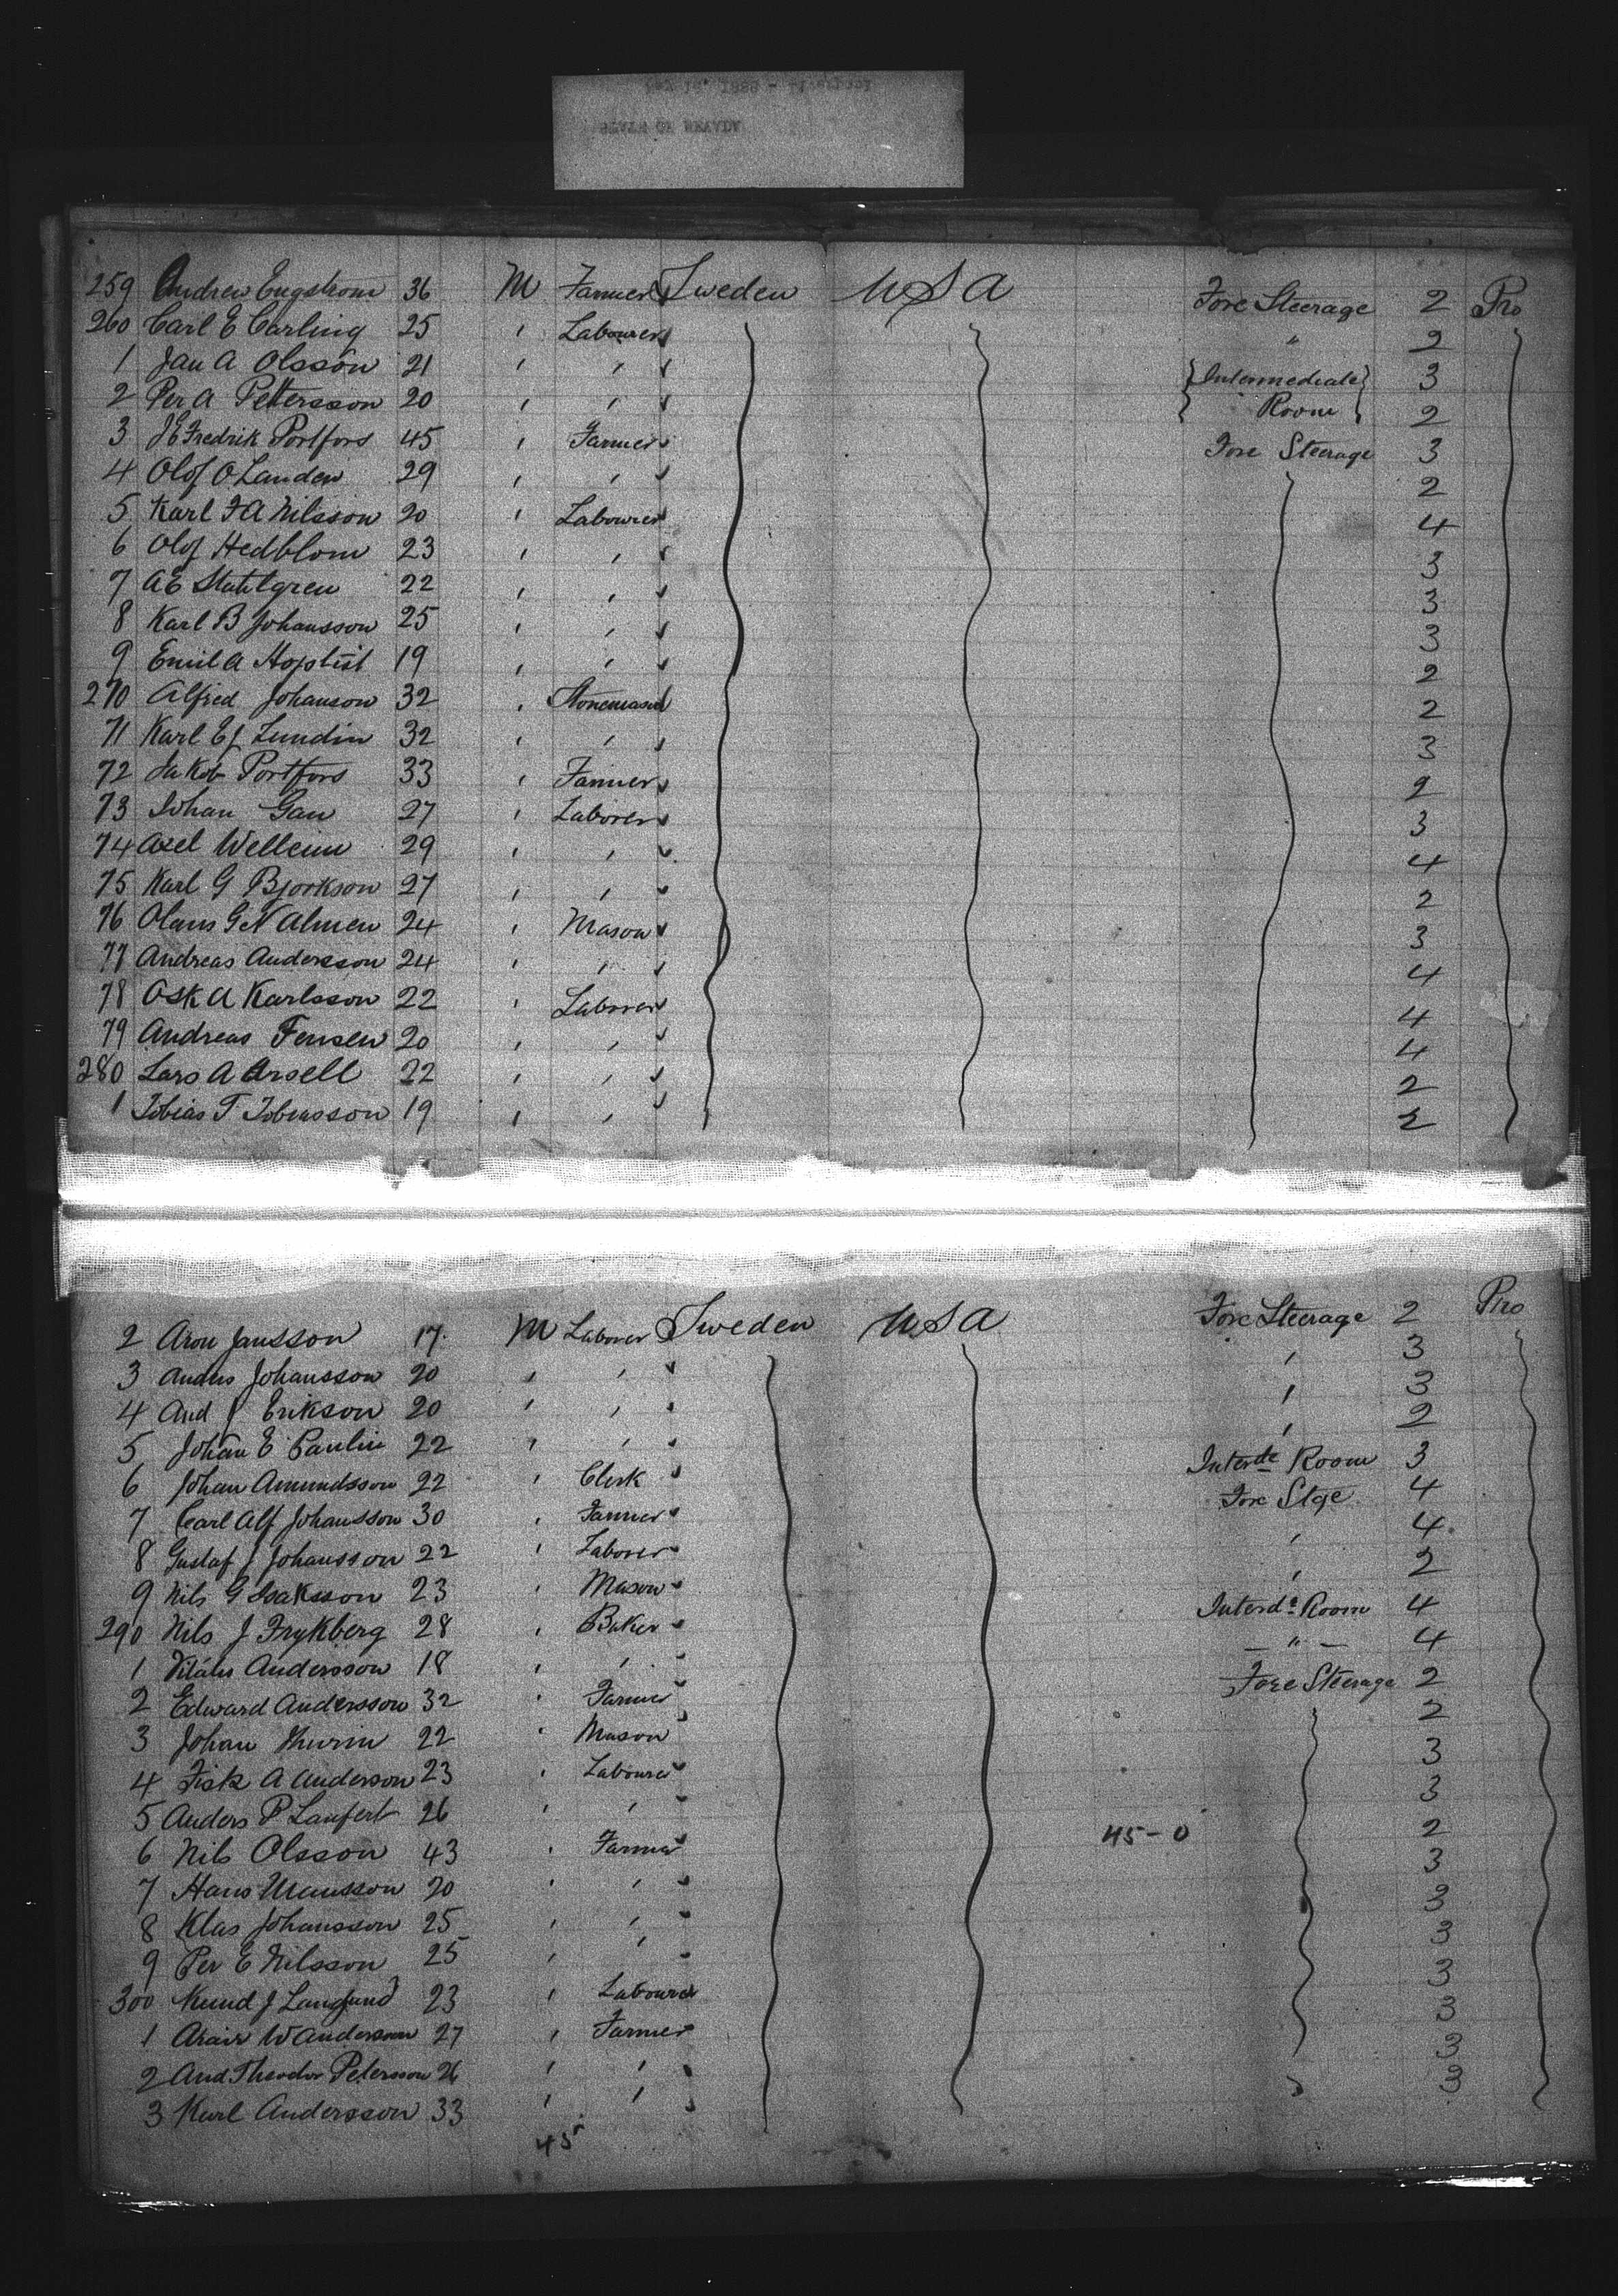 259 Andrew Engstrom 36 M Farmer Sweden U S A Fore Steerage 2 Pro
260 Carl E Carling 25 " Labourer " 2
1 Jan A Olsson 21 " " Intermediate 3
2 Per A Pettersson 20 " " Room 2
3 J E Fredrik Portfors 45 " Farmer Fore Steerage 3
4 Olof O Landen 29 " " 2
5 Karl F A Nilsson 20 " Labourer 4
6 Olof Hedblom 23 " " 3
7 A E Stahlgren 22 " " 3
8 Karl B Johansson 25 " " 3
9 Emil A 19 " " 2
270 Alfred Johanson 32 " Stonemason 2
71 Karl Ej Lundin 32 " " 3
72 Jakob Portfors 33 " Farmer 2
73 Johan Gan 27 " Laborer 3
74 Axel 29 " " 4
75 Karl G Bjorkson 27 " " 2
76 Olaus G N Almen 24 " Mason 3
77 Andreas Andersson 24 " " 4
78 Osk A Karlsson 22 " Laborer 4
79 Andreas Jensen 20 " " 4
280 Lars A Arsell 22 " " 2
1 Tobias T Tobiasson 19 " " 2
2 Aron Jansson 17 M Laborer Sweden U S A Fore Steerage 2 Pro
3 Anders Johansson 20 " " " 3
4 And J Erikson 20 " " " 3
5 Johan E Paulin 22 " " " 2
6 Johan Amundsson 22 " Clerk Interde Room 3
7 Carl Alf Johansson 30 " Farmer Fore Stge 4
8 Gustaf J Johansson 22 " Laborer " 4
9 Nils G Isaksson 23 " Mason " 2
290 Nils J Frykberg 28 " Baker Interde Room 4
1 Andersson 18 " " — " — 4
2 Edward Andersson 32 " Farmer Fore Steerage 2
3 Johan Thurin 22 " Mason 2
4 Fisk A Anderson 23 " Labourer 3
5 Anders P Laufert 26 " " 3
6 Nils Olsson 43 " Farmer 45-0 2
7 Hans Mansson 20 " " 3
8 Klas Johansson 25 " " 3
9 Per E Nilsson 25 " " 3
300 Knud J 23 " Labourer 3
1 W Anderson 27 " Farmer 3
2 And Theodor Petersson 26 " " 3
3 Karl Andersson 33 " " 3
45